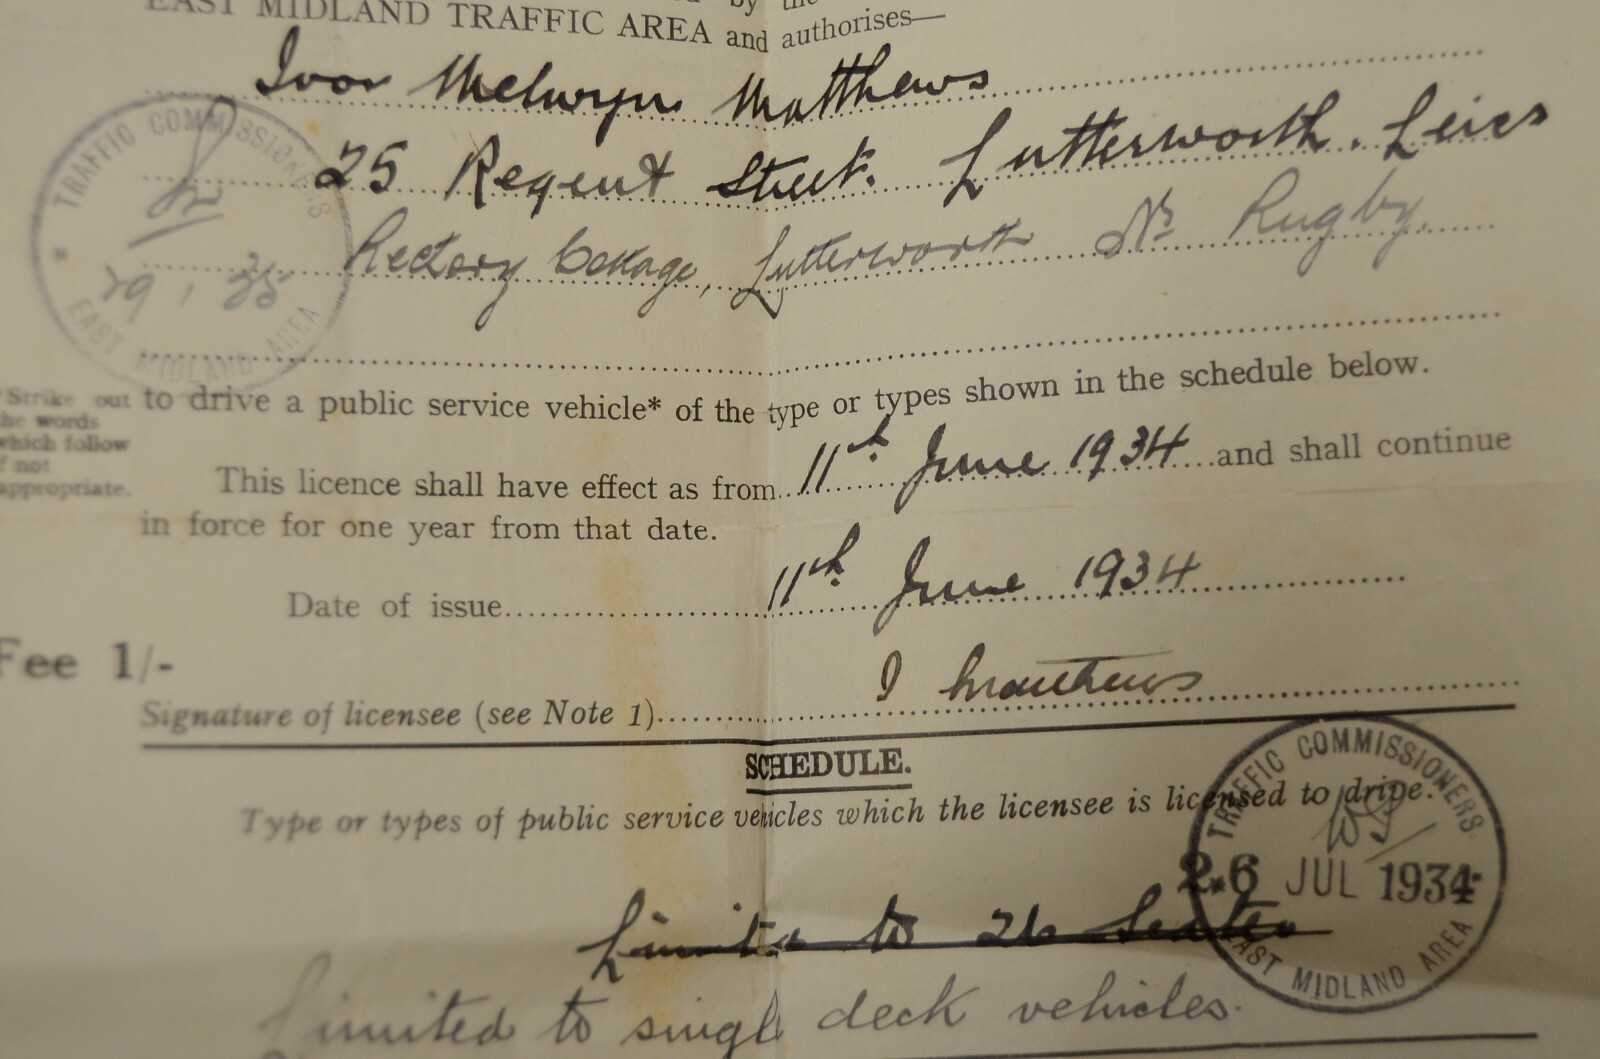 by the
EAST MIDLAND TRAFFIC AREA and authorises—
Ivor Melwyn Matthews
25 Regent Street. Lutterworth. Leics
Rectory Cottage, Lutterworth Nr Rugby.
TRAFFIC COMMISSIONERS
29 1 35
* EAST MIDLAND AREA
Strike out
the words
which follow
if not
appropriate.
to drive a public service vehicle* of the type or types shown in the schedule below.
This licence shall have effect as from 11th June 1934 and shall continue
in force for one year from that date.
Date of issue 11th June 1934
Fee 1/-
Signature of licensee (see Note 1) I Matthews
SCHEDULE.
Type or types of public service vehicles which the licensee is licensed to drive.
TRAFFIC COMMISSIONERS
26 JUL 1934
EAST MIDLAND AREA
Limited to 26 Seats
Limited to single deck vehicles.